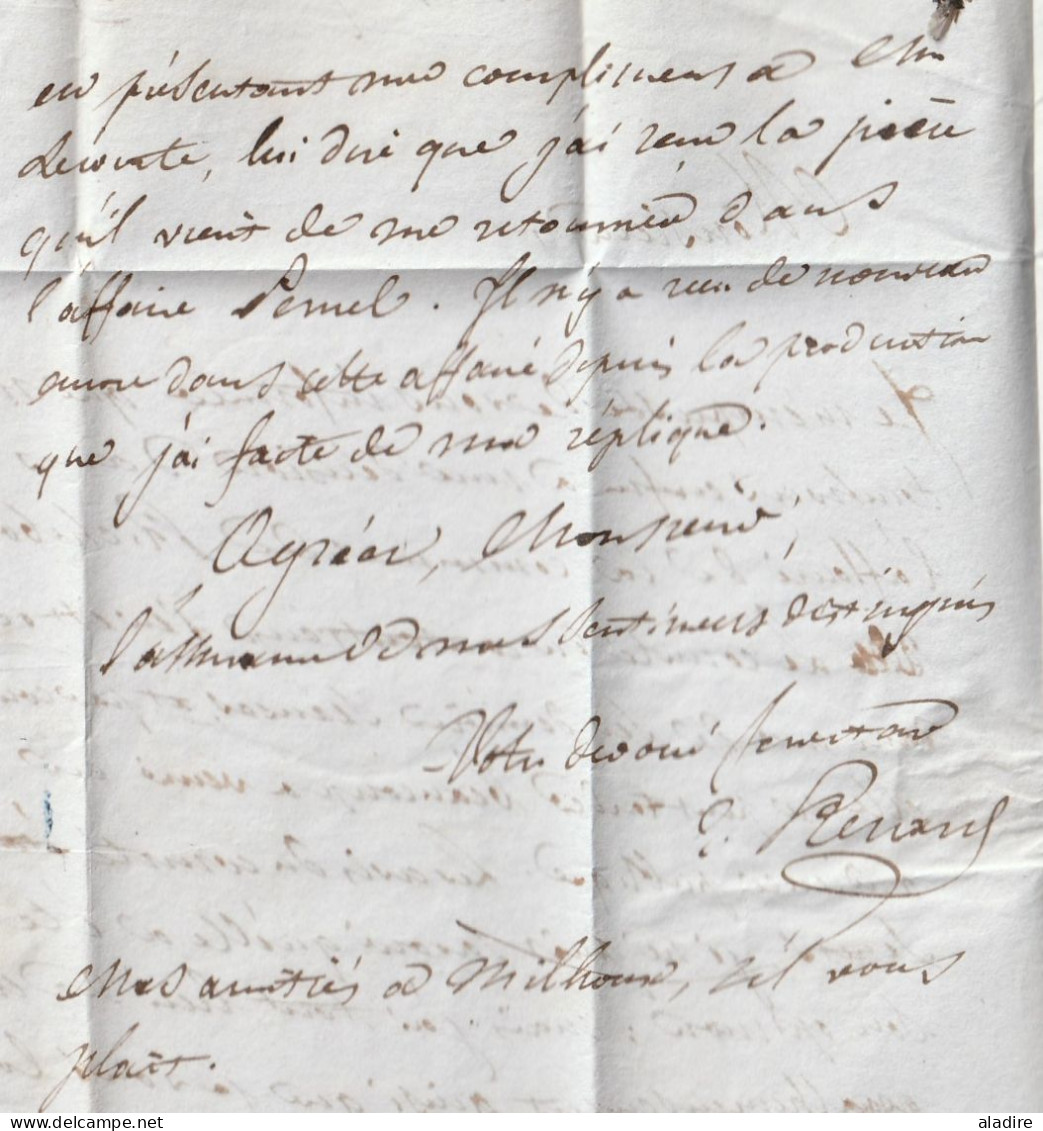 en présentant mes complimens à Mr
Lecomte, lui dire que j'ai reçu la pièce
qu'il vient de me retourner dans
l'affaire Pernel. Il n'y a rien de nouveau
encore dans cette affaire depuis la production
que j'ai faite de ma réplique.
Agréez, Monsieur,
l'assurance de mes sentimens distingués
Votre dévoué serviteur
Renard
Mes amitiés à Milhoux, s'il vous
plait.
aladire